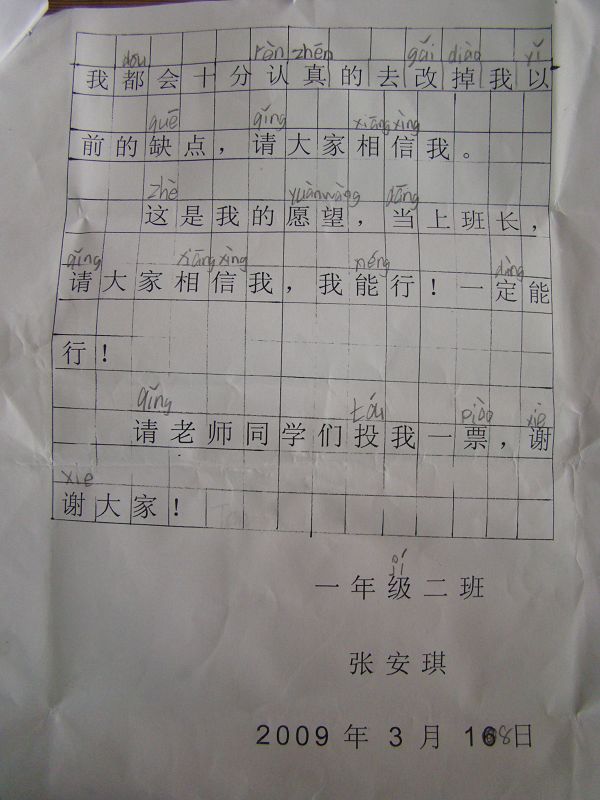 dōu rèn zhēn gǎi diào yǐ
我都会十分认真的去改掉我以
quē qǐng xiāng xìng
前的缺点，请大家相信我。
zhè yuàn wàng dāng
这是我的愿望，当上班长，
qǐng xiāng xìng néng dìng
请大家相信我，我能行！一定能
行！
qǐng tóu piào xiè
请老师同学们投我一票，谢
xie
谢大家！
jí
一年级二班
张安琪
2009 年 3 月 168日